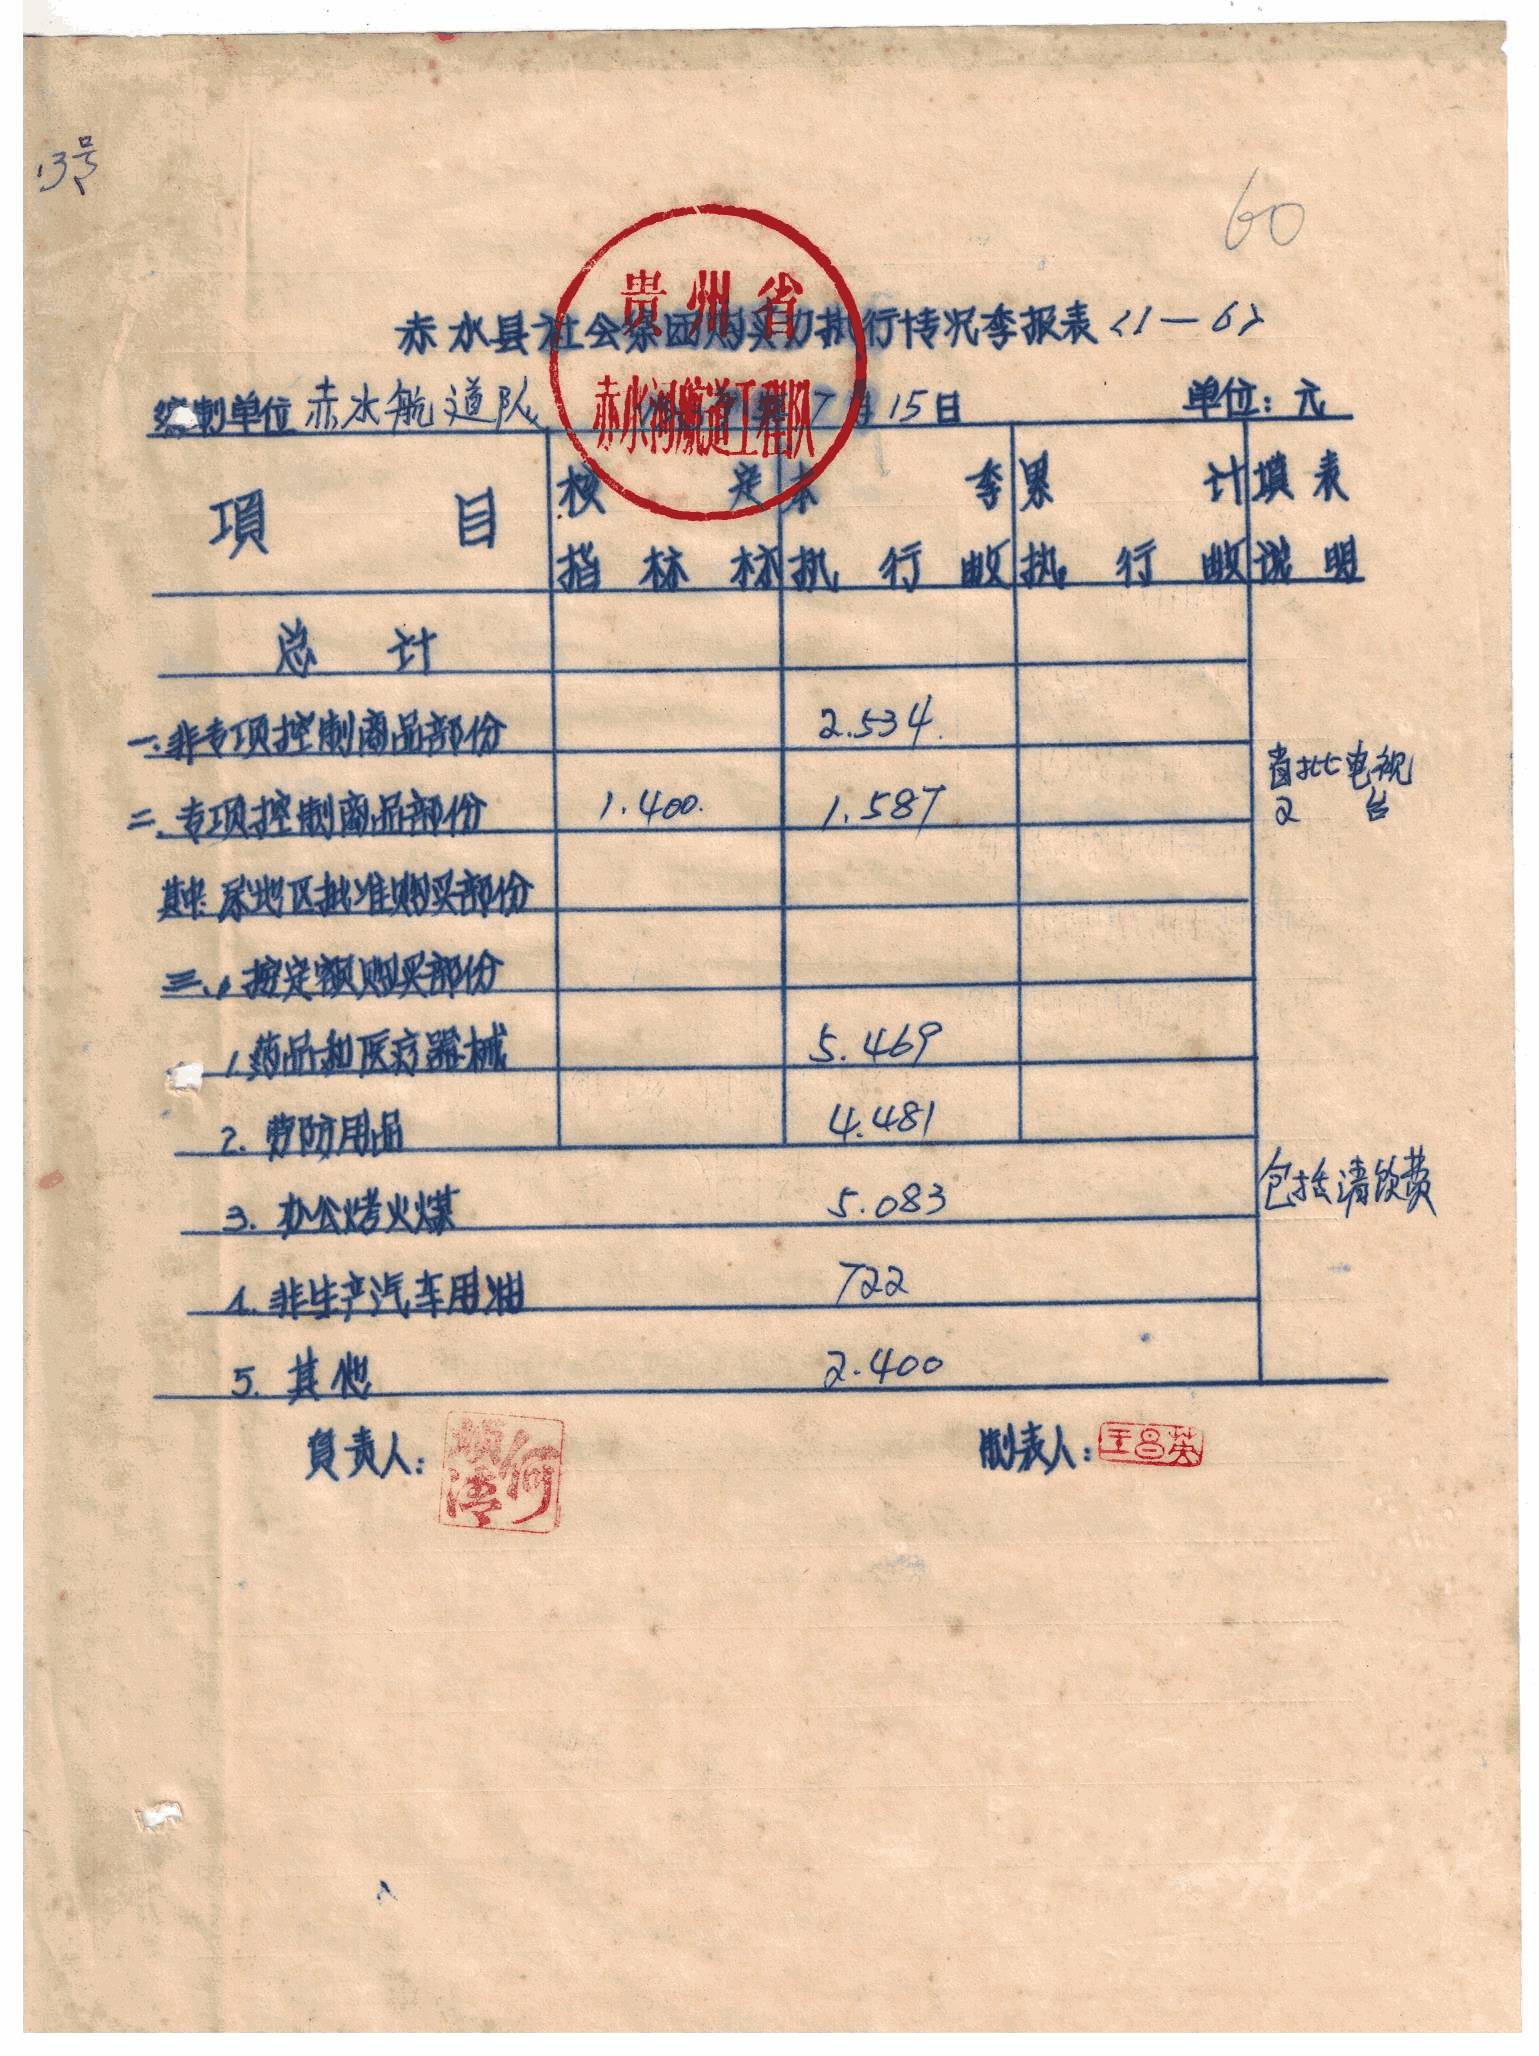 13号
60
赤水县社会集团购买力执行情况季报表<1—6>
编制单位 赤水航道队 7月15日 单位:元
贵州省
赤水河航道工程队
項目 核定指标 本季执行数 累计执行数 填表说明
总计
一.非专项控制商品部份 2.534.
二.专项控制商品部份 1.400. 1.587 省批电视2台
其中:尿地区批准购买部份
三、按定额购买部份
1.药品和医疗器械 5.469
2.劳防用品 4.481
3.办公烤火煤 5.083 包括清饮费
4.非生产汽车用油 722
5.其他 2.400
負责人: 制表人:王昌英